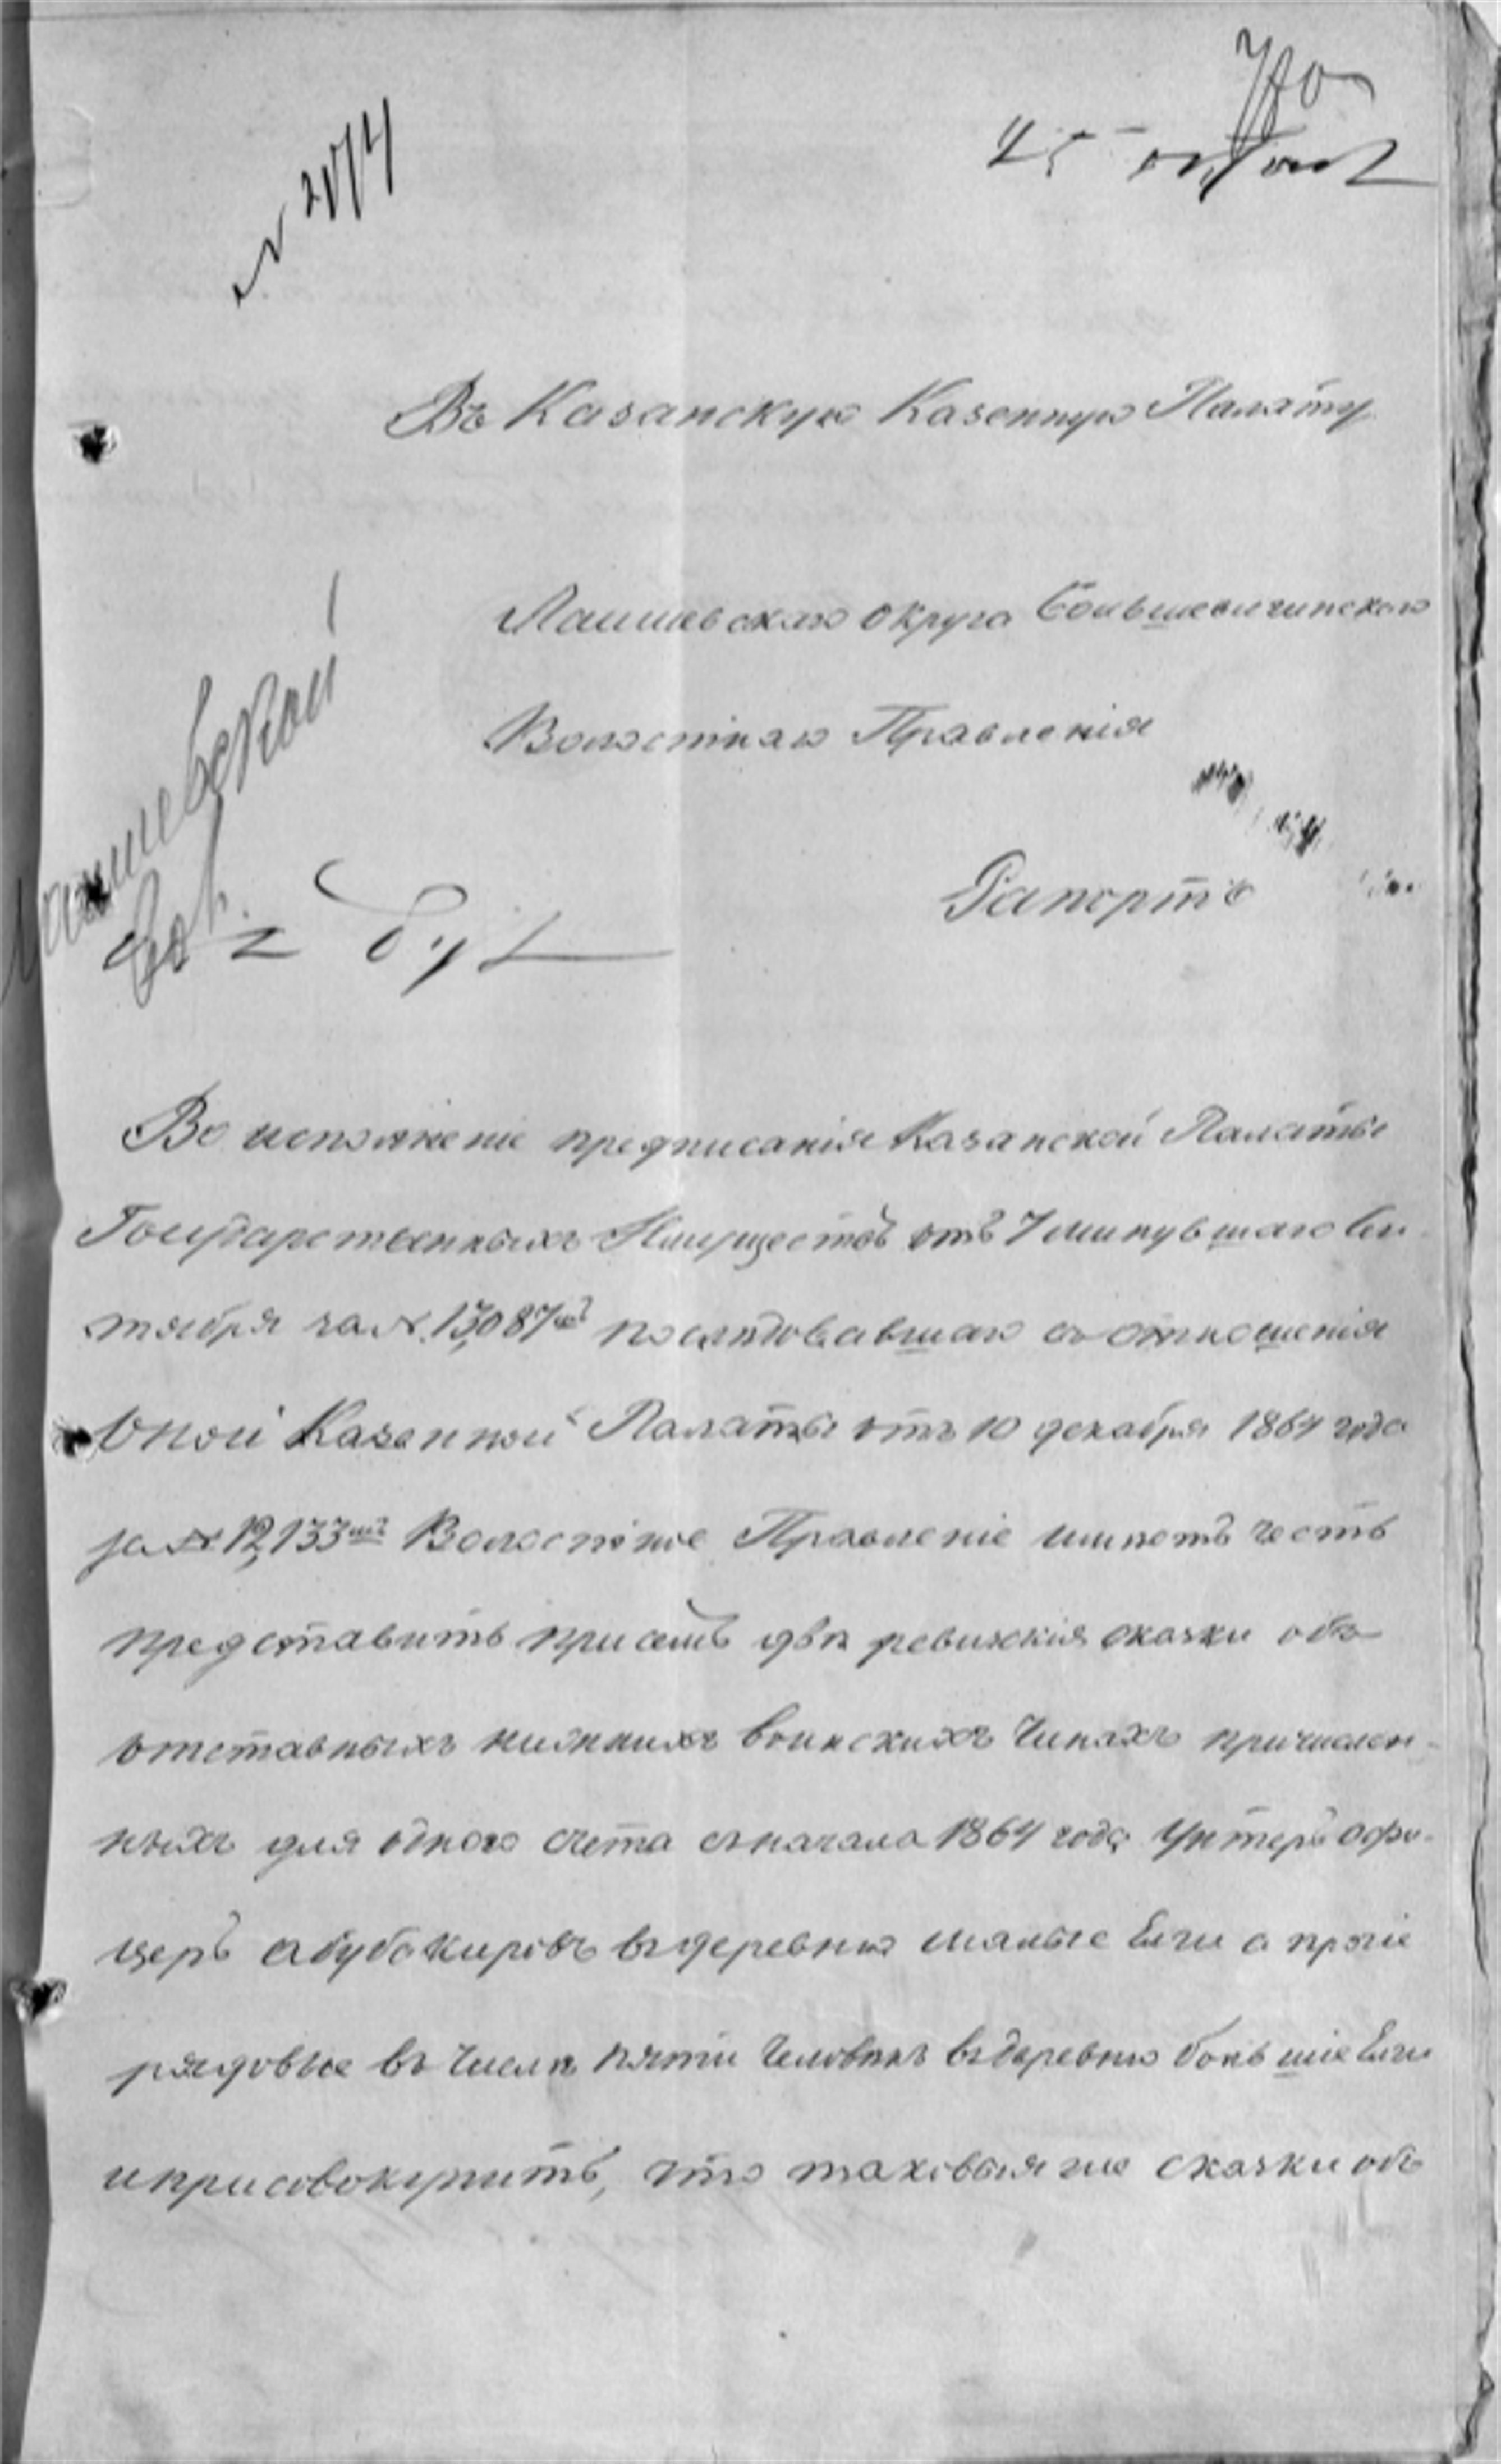 Въ Казанскую Казенную Палату
Лаишевскаго округа
Волостнаго Правленія
Рапортъ
Лаишевской
Во исполненіе предписанія Казанской Палаты
Государственныхъ Имуществъ отъ 7 минувшаго Сен-
тября за № 13,087 послѣдовавшаго отношенія
Оной Казенной Палаты отъ 10 декабря 1864 года
за № 12,133 Волостное Правленіе имѣетъ честь
представить при семъ двѣ ревижскія сказки объ
отставныхъ нижнихъ воинскихъ чинахъ причислен-
ныхъ для одного счета съ начала 1864 года Унтеръ офи-
церъ абубакировъ въ деревню малые Елги а прочіе
рядовые въ числѣ пяти человѣкъ въ деревню большіе Елги
и присовокупить, что таковыя же сказки объ